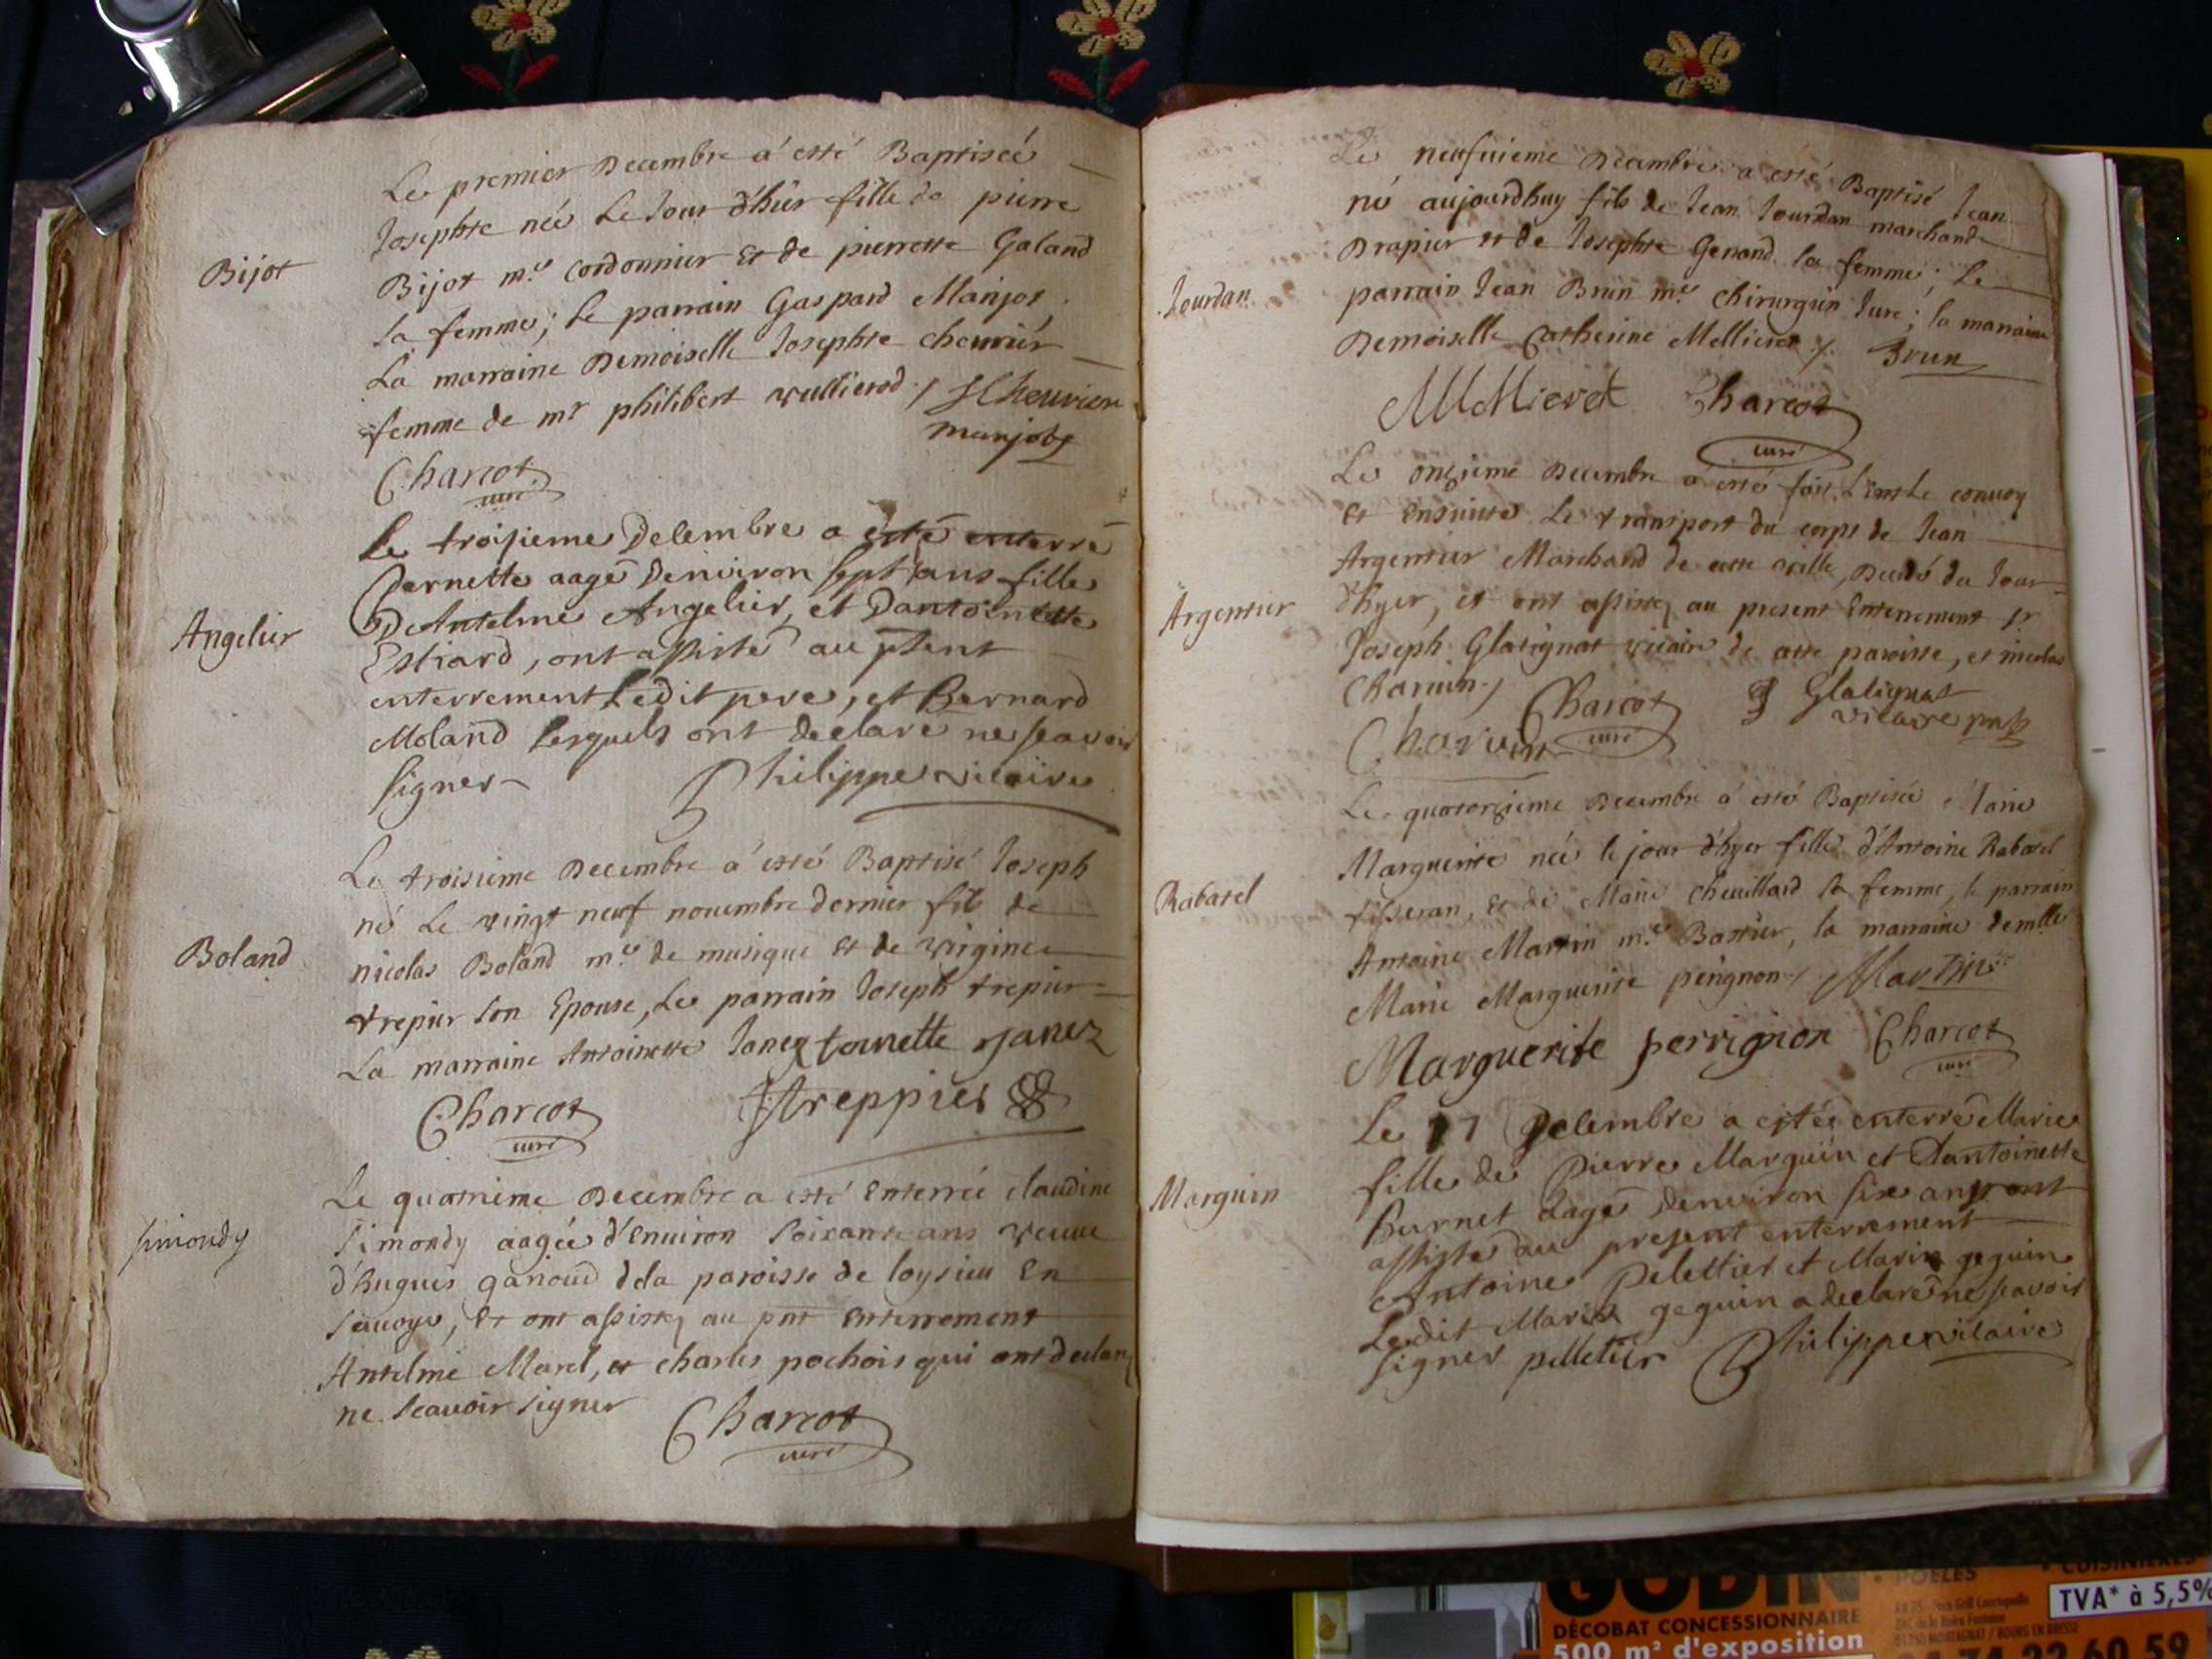 Le premier Decembre a esté Baptiseé
Josephte neé Le Jour d'hier fille de pierre
Bijot
Bijot m.e cordonnier Et de pierrette Galand
sa femme; Le parrain Gaspard Manjot,
La marraine Demoiselle Josephte chevrier
femme de mr philibert vullierod ./. JChevrier
manjot
Charcot
curé
Le troisieme Decembre a esté enterré
Pernette aagé Denviron sept ans fille
Angelier
D'Antelme Angelier, et Dantoinette
Estiard, ont assisté au psent
enterrement Ledit pere, et Bernard
Moland Lesquels ont declaré ne scavoir
signer
Philippe vicaire
Le troisieme Decembre a esté Baptisé Joseph
né Le vingt neuf novembre dernier fils de
Boland
nicolas Boland m.e de musique Et de virginie
trepier son Epouse, Le parrain Joseph trepier
La marraine Antoinette Janex tounette janez
Charcot
curé
Jtreppier
Le quatrieme Decembre a esté Enterreé claudine
simondy
Simondy aageé d'Environ soixante ans veuve
d'hugues ganoud dela paroisse de loysieu En
Savoye, Et ont assistez au pnt Enterrement
Antelme Marel, et charles pochois qui ont declaré
ne scavoir signer
Charcot
curé
Le neufvieme Decembre a esté Baptisé Jean
né aujourdhuy fils de Jean Jourdan marchand
Drapier et de Josephte Genand sa femme; Le
Jourdan
parrain Jean Brun m.e chirurgien Juré; la marraine
Demoiselle Catherine Mellieret ./. Brun
MMellieret Charcot
curé
Le onzieme Decembre a esté fait le convoy
Et Ensuitte Le transport du corps de Jean
Argentier Marchand de cette ville, Decedé du Jour
Argentier
d'hyer, et ont assistez au present Enterrement sr
Joseph Glatignat vicaire de cette paroisse, et nicolas
Charvin ./.
Charvin
Charcot
curé
J Glatignat
vicaire
Le quatorzieme Decembre a esté Baptiseé Marie
Marguerite neé le jour d'hyer fille d'Antoine Rabatel
Rabatel
tisseran, et de Marie chevillard sa femme, le parrain
Antoine Martin m.e Bastier, la marraine demlle
Marie Marguerite perignon ./. Martin
Marguerite perrignon Charcot
curé
Le 17 Decembre a esté enterré Marie
fille de Pierre Marguin et Dantoinette
Marguin
burnet aagé denviron six ans ont
assisté au present enterrement
Antoine Pelettier et Marin geguin
Ledit Marin geguin a declaré ne scavoir
signer pelletier Philippe vicaire
GODIN
DÉCOBAT CONCESSIONNAIRE
500 m² d'exposition
POÊLES
CUISINIÈRES
TVA* à 5,5%